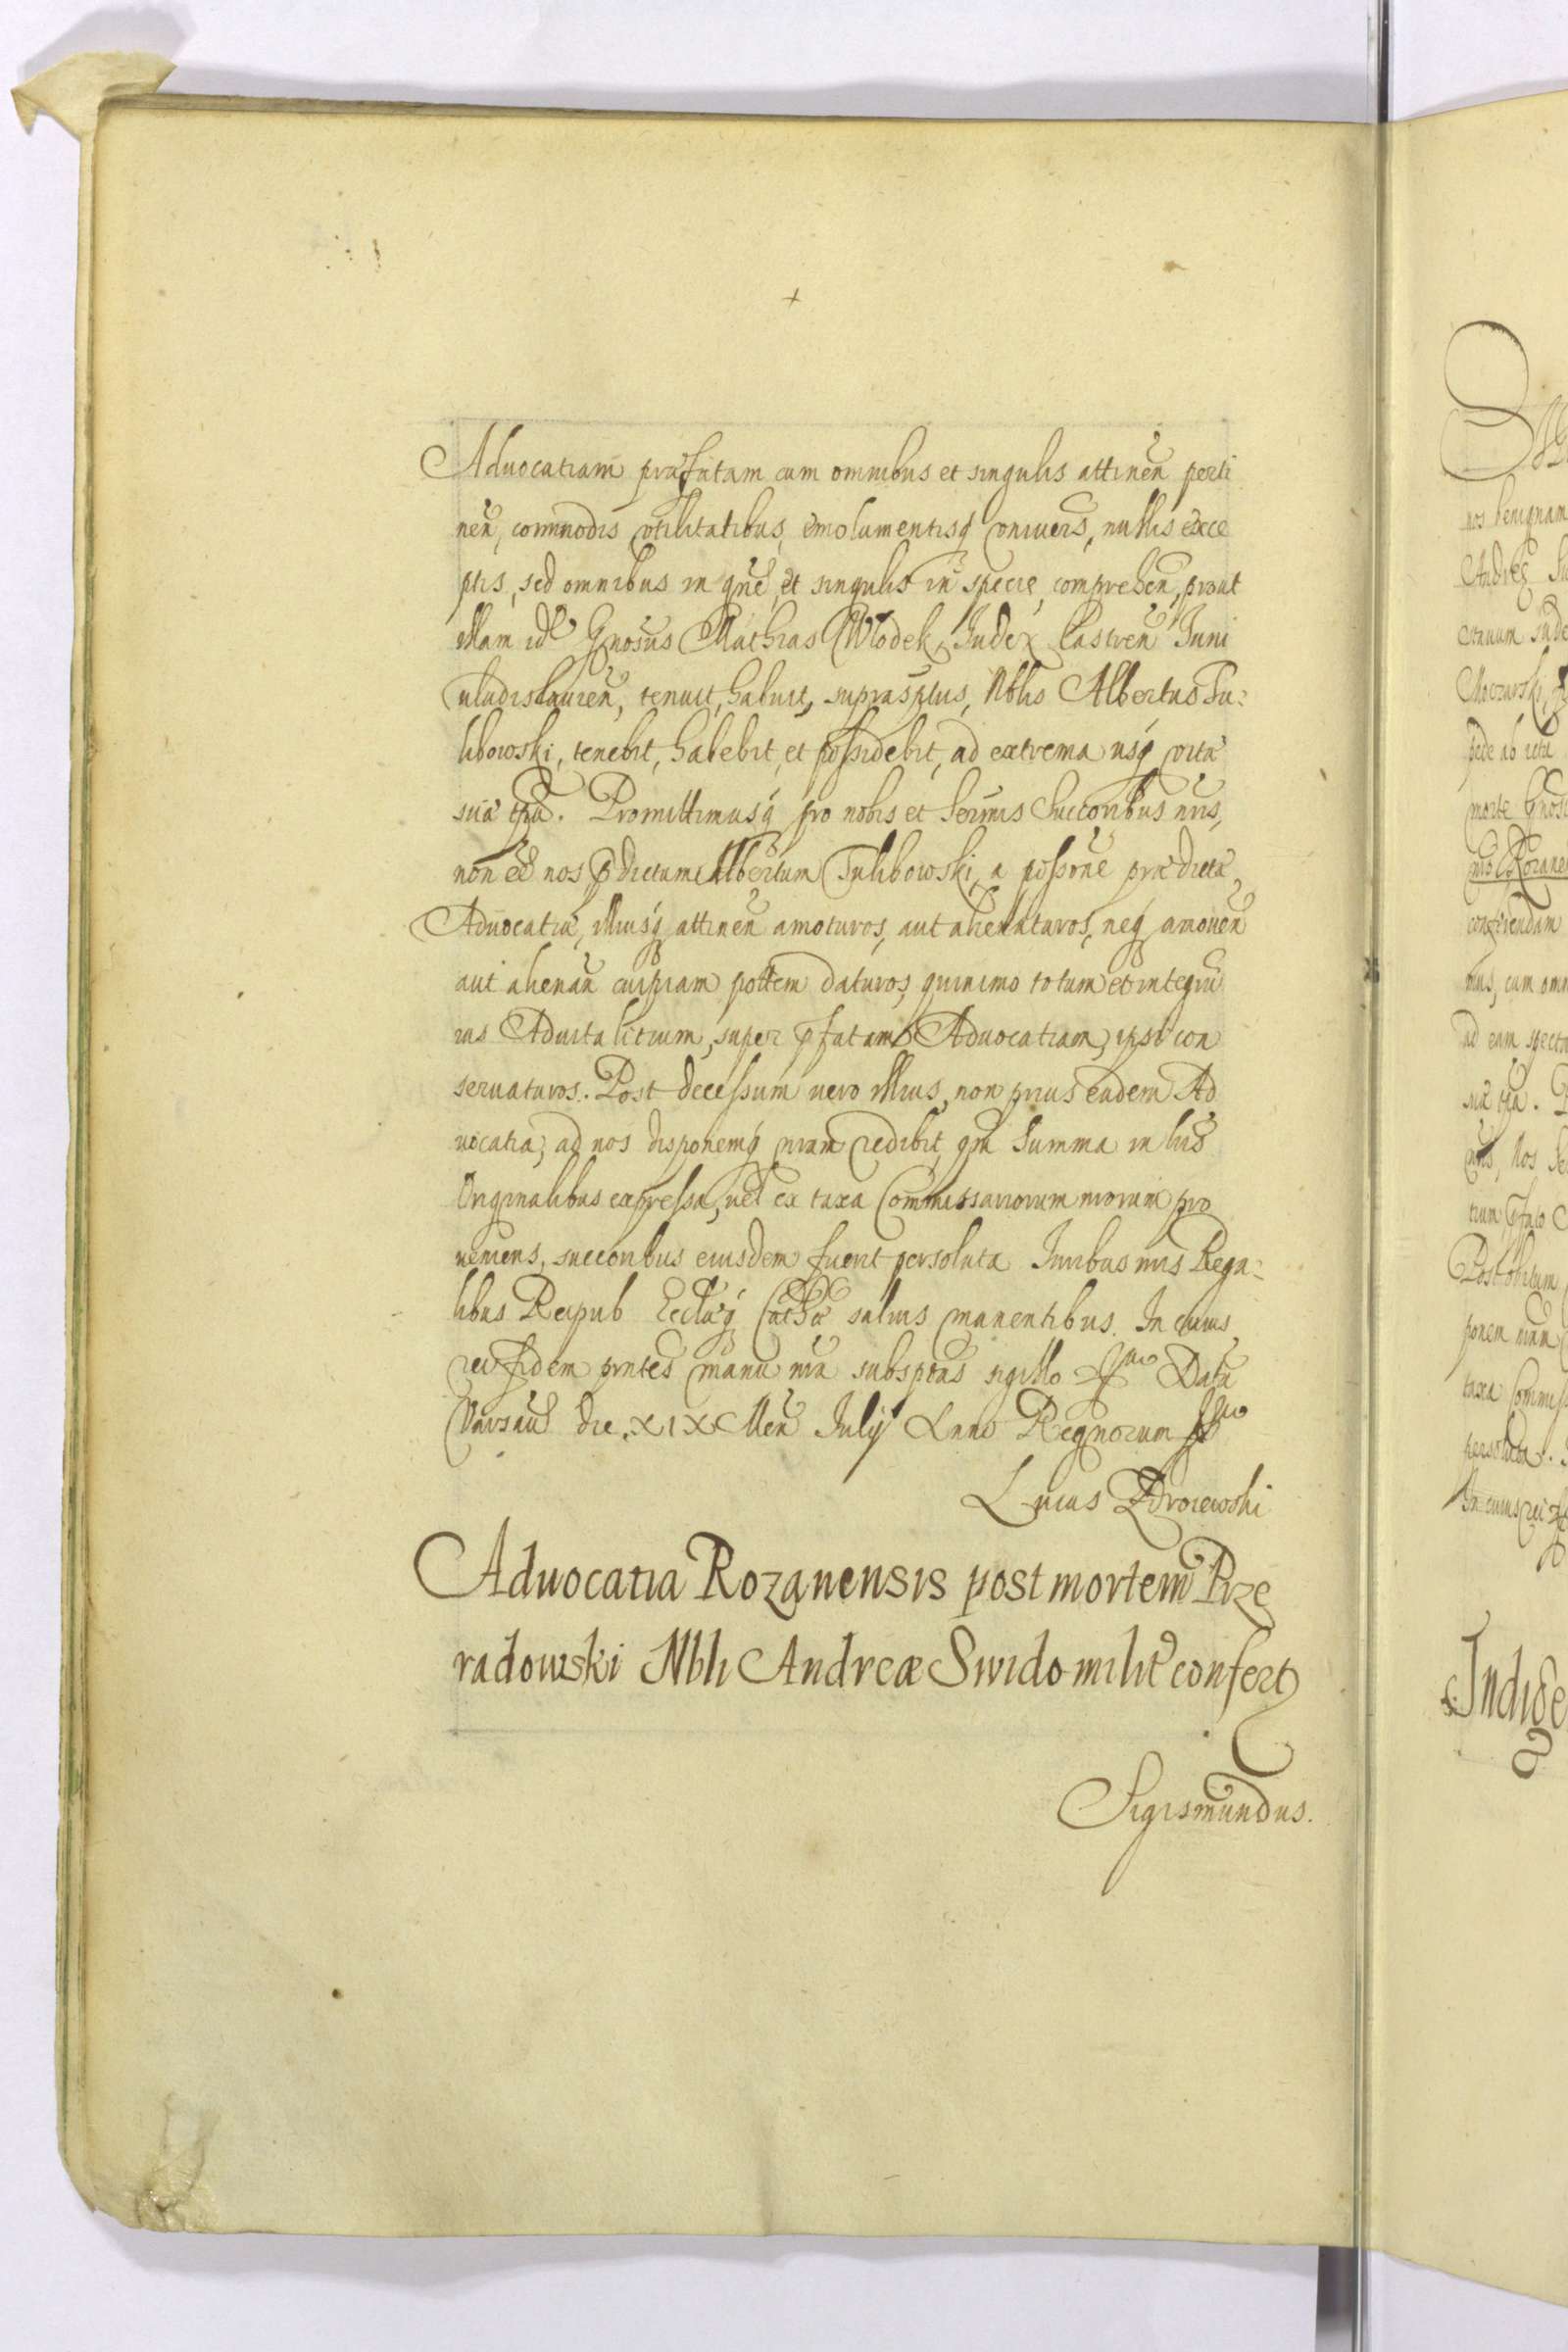 Aduocatiam præfatam cum omnibus et singulis attineñ perti
neñ, commodis vtilitatibus, emolumentisq́ vniuers, nullis exce
ptis, sed omnibus in gñe, et singulis in specie, compreheñ, prout
illam idē Gnosus Mathias Wlodek Iudex Castreñ Iuni
uladislauieñ, tenuit, habuit, suprasptus, Nblis Albertus Tu-
libowski, tenebit, habebit, et possidebit, ad extrema usq́ vitæ
suæ tpa. Promittimusq́ pro nobis et Sermis Succoribus nris,
non eē nos, p̄dictum Albertum Tulibowski, a possone prædictæ
Aduocatiæ, illiusq́ attineñ amoturos, aut alienaturos, neq́ amoueñ
aut alienañ cuipiam potem daturos, quinimo totum et integrū
ius Aduitalitium, super p̄fatam Aduocatiam, ipsi con
seruaturos. Post decessum uero illius, non prius eadem Ad
uocatia, ad nos disponemq́ nram redibit, qm summa in lris
Originalibus expressa, uel ex taxa Commissariorum nrorum pro
ueniens, succoribus eiusdem fuerit persoluta Iuribus nris Rega-
libus Reipub Eccliæq́ Cathæ saluis manentibus. In cuius
rei fidem pntes manu nra subsptas sigillo
Data
Varsauiæ die XIX Meñ Iulij Anno Regnorum
Lucas Zdroiewski
Aduocatia Rozanensis post mortem Prze
radowski Nbli Andreæ Swido milit confert
Sigismundus.
nos benignam
morte Gnosi
conferendam
ad eam specta
Post obitum
ponem nram
taxa Commiss
persoluta.
In cuius rei
Indige